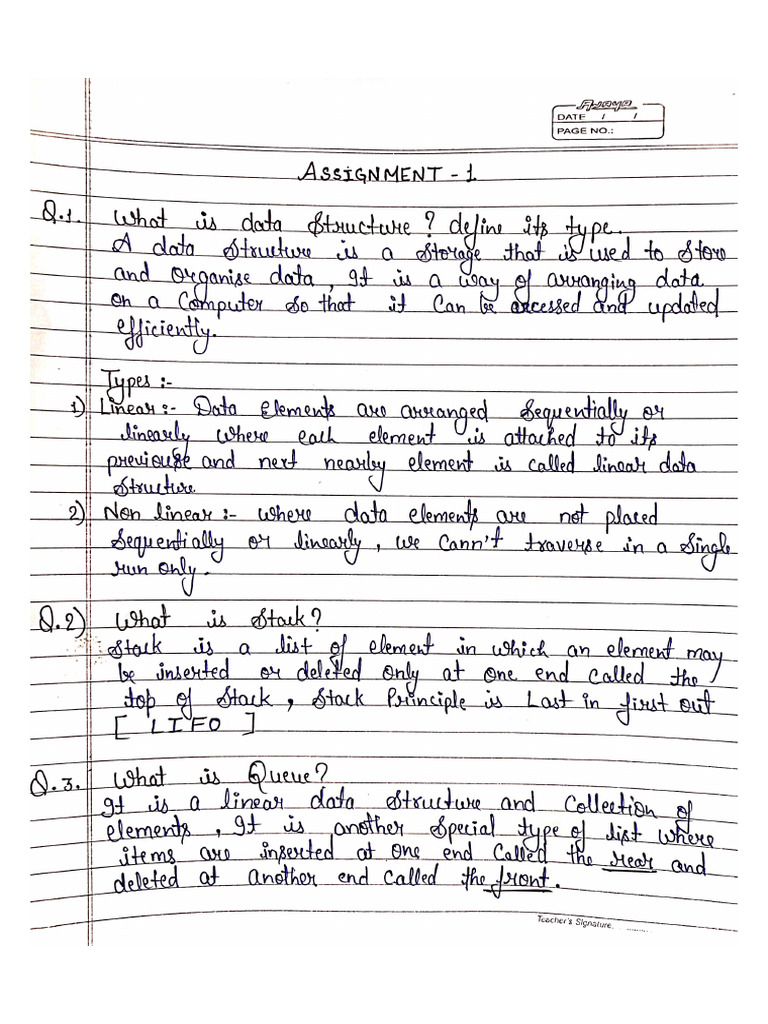 Ajaya
DATE / /
PAGE NO.:
ASSIGNMENT - 1
Q.1. What is data structure ? define its type.
A data structure is a storage that is used to store
and organise data , It is a way of arranging data
on a computer so that it can be accessed and updated
efficiently.
Types :-
1) Linear :- Data Elements are arranged sequentially or
linearly where each element is attached to its
previouse and next nearby element is called linear data
structure
2) Non linear :- where data elements are not placed
sequentially or linearly , we cann't traverse in a single
run only.
Q.2) What is stack ?
Stack is a list of element in which an element may
be inserted or deleted only at one end called the
top of stack , stack Principle is Last in first out
[ LIFO ]
Q.3. What is Queue ?
It is a linear data structure and collection of
elements , It is another special type of list where
items are inserted at one end called the rear and
deleted at another end called the front .
Teacher's Signature.